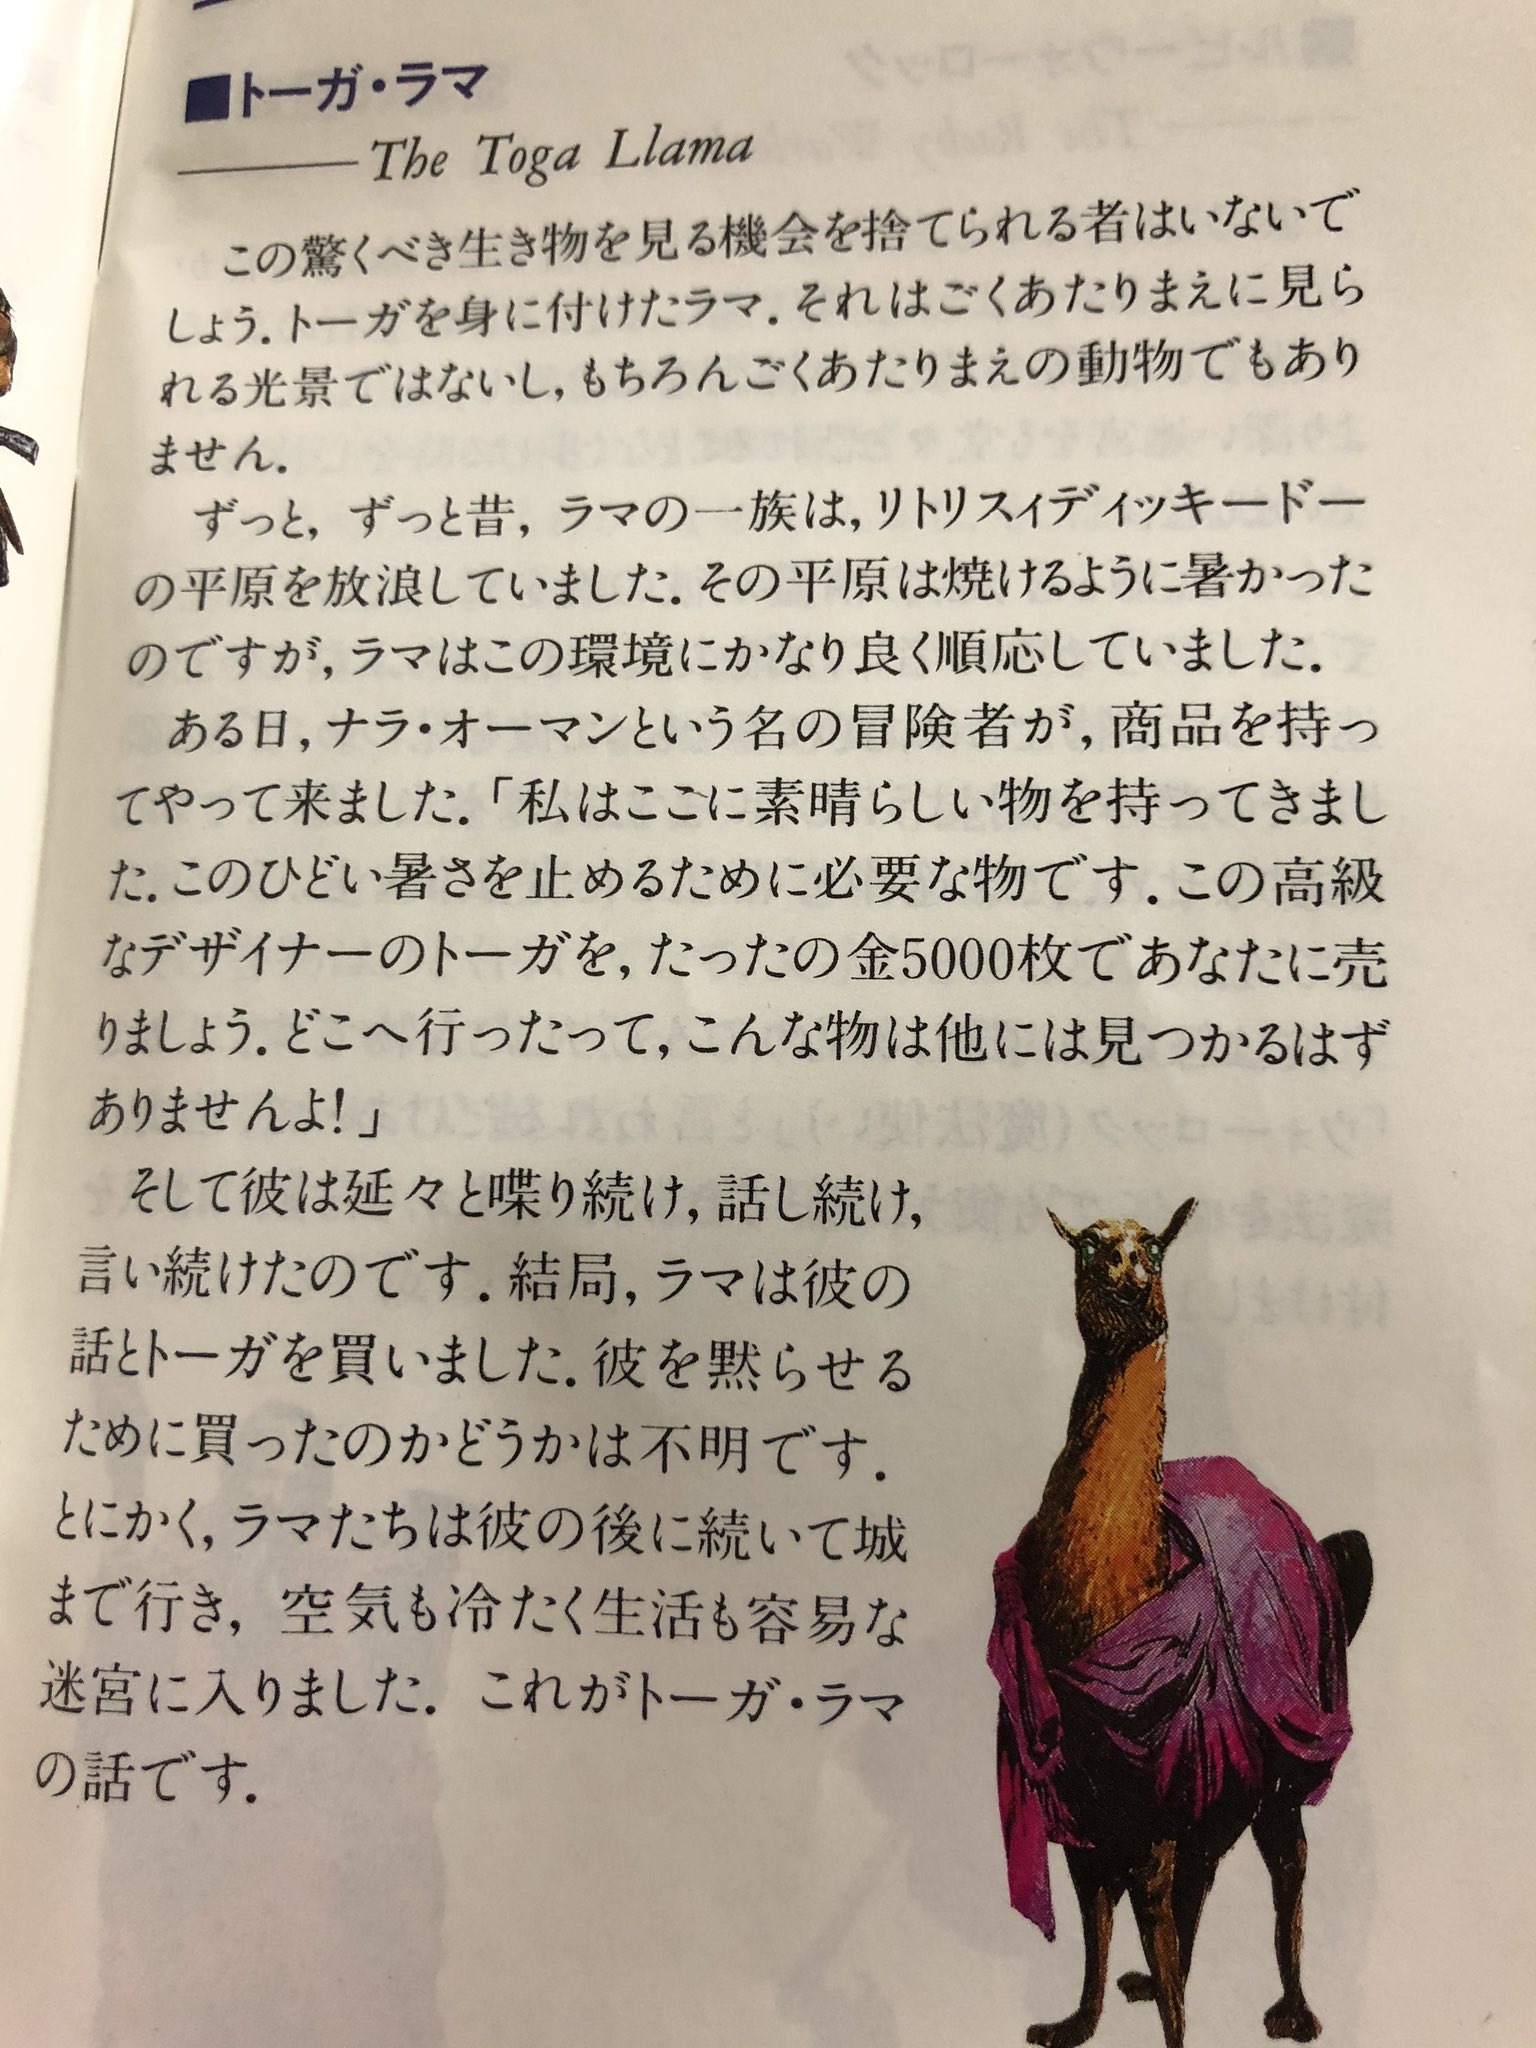 ■トーガ・ラマ
The Toga Llama
この驚くべき生き物を見る機会を捨てられる者はいないで
しょう．トーガを身に付けたラマ．それはごくあたりまえに見ら
れる光景ではないし，もちろんごくあたりまえの動物でもあり
ません．
ずっと，ずっと昔，ラマの一族は，リトリスィディッキードー
の平原を放浪していました．その平原は焼けるように暑かった
のですが，ラマはこの環境にかなり良く順応していました．
ある日，ナラ・オーマンという名の冒険者が，商品を持っ
てやって来ました．「私はここに素晴らしい物を持ってきまし
た．このひどい暑さを止めるために必要な物です．この高級
なデザイナーのトーガを，たったの金5000枚であなたに売
りましょう．どこへ行ったって，こんな物は他には見つかるはず
ありませんよ！」
そして彼は延々と喋り続け，話し続け，
言い続けたのです．結局，ラマは彼の
話とトーガを買いました．彼を黙らせる
ために買ったのかどうかは不明です．
とにかく，ラマたちは彼の後に続いて城
まで行き，空気も冷たく生活も容易な
迷宮に入りました．これがトーガ・ラマ
の話です．